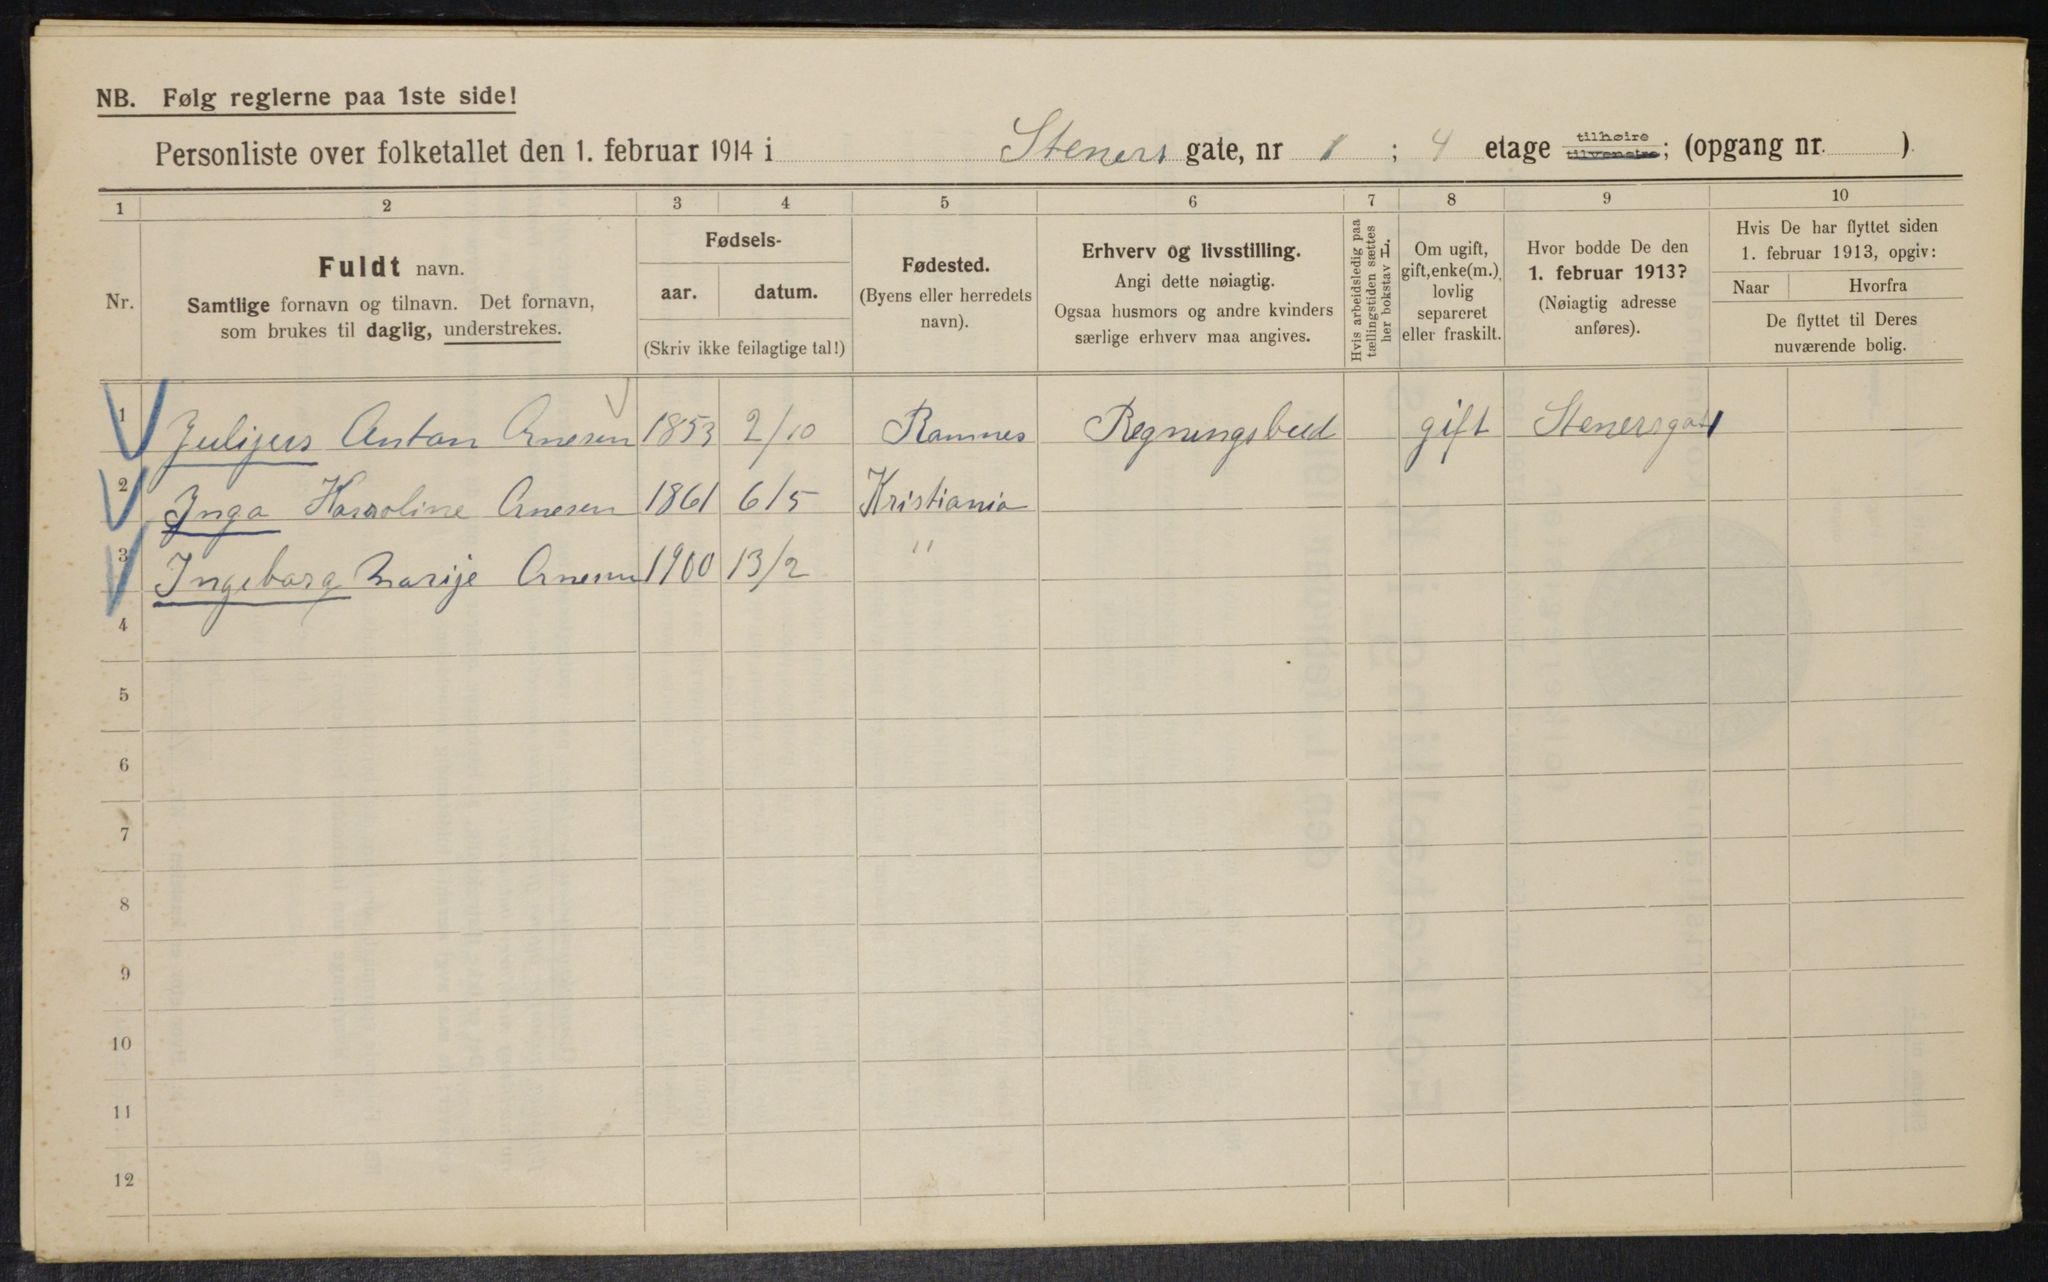 NB. Følg reglerne paa 1ste side!
Personliste over folketallet den 1. februar 1914 i Steners gate, nr 1 ; 4 etage tilhøire tilvenstre; (opgang nr. )
1 2 3 4 5 6 7 8 9 10
Nr.
Fuldt navn.
Samtlige fornavn og tilnavn. Det fornavn,
som brukes til daglig, understrekes.
Fødsels-
aar. datum.
(Skriv ikke feilagtige tal!)
Fødested.
(Byens eller herredets
navn).
Erhverv og livsstilling.
Angi dette nøiagtig.
Ogsaa husmors og andre kvinders
særlige erhverv maa angives.
Hvis arbeidsledig paa
tællingstiden sættes
her bokstav L.
Om ugift,
gift, enke(m.),
lovlig
separeret
eller fraskilt.
Hvor bodde De den
1. februar 1913?
(Nøiagtig adresse
anføres).
Hvis De har flyttet siden
1. februar 1913, opgiv:
Naar Hvorfra
De flyttet til Deres
nuværende bolig.
1 Julijus Anton Arnesen 1853 2/10 Ramnes Regningsbud gift Stenersgat 1
2 Inga Karoline Arnesen 1861 6/5 Kristiania
3 Ingeborg Marije Arnesen 1900 13/2 "
4
5
6
7
8
9
10
11
12